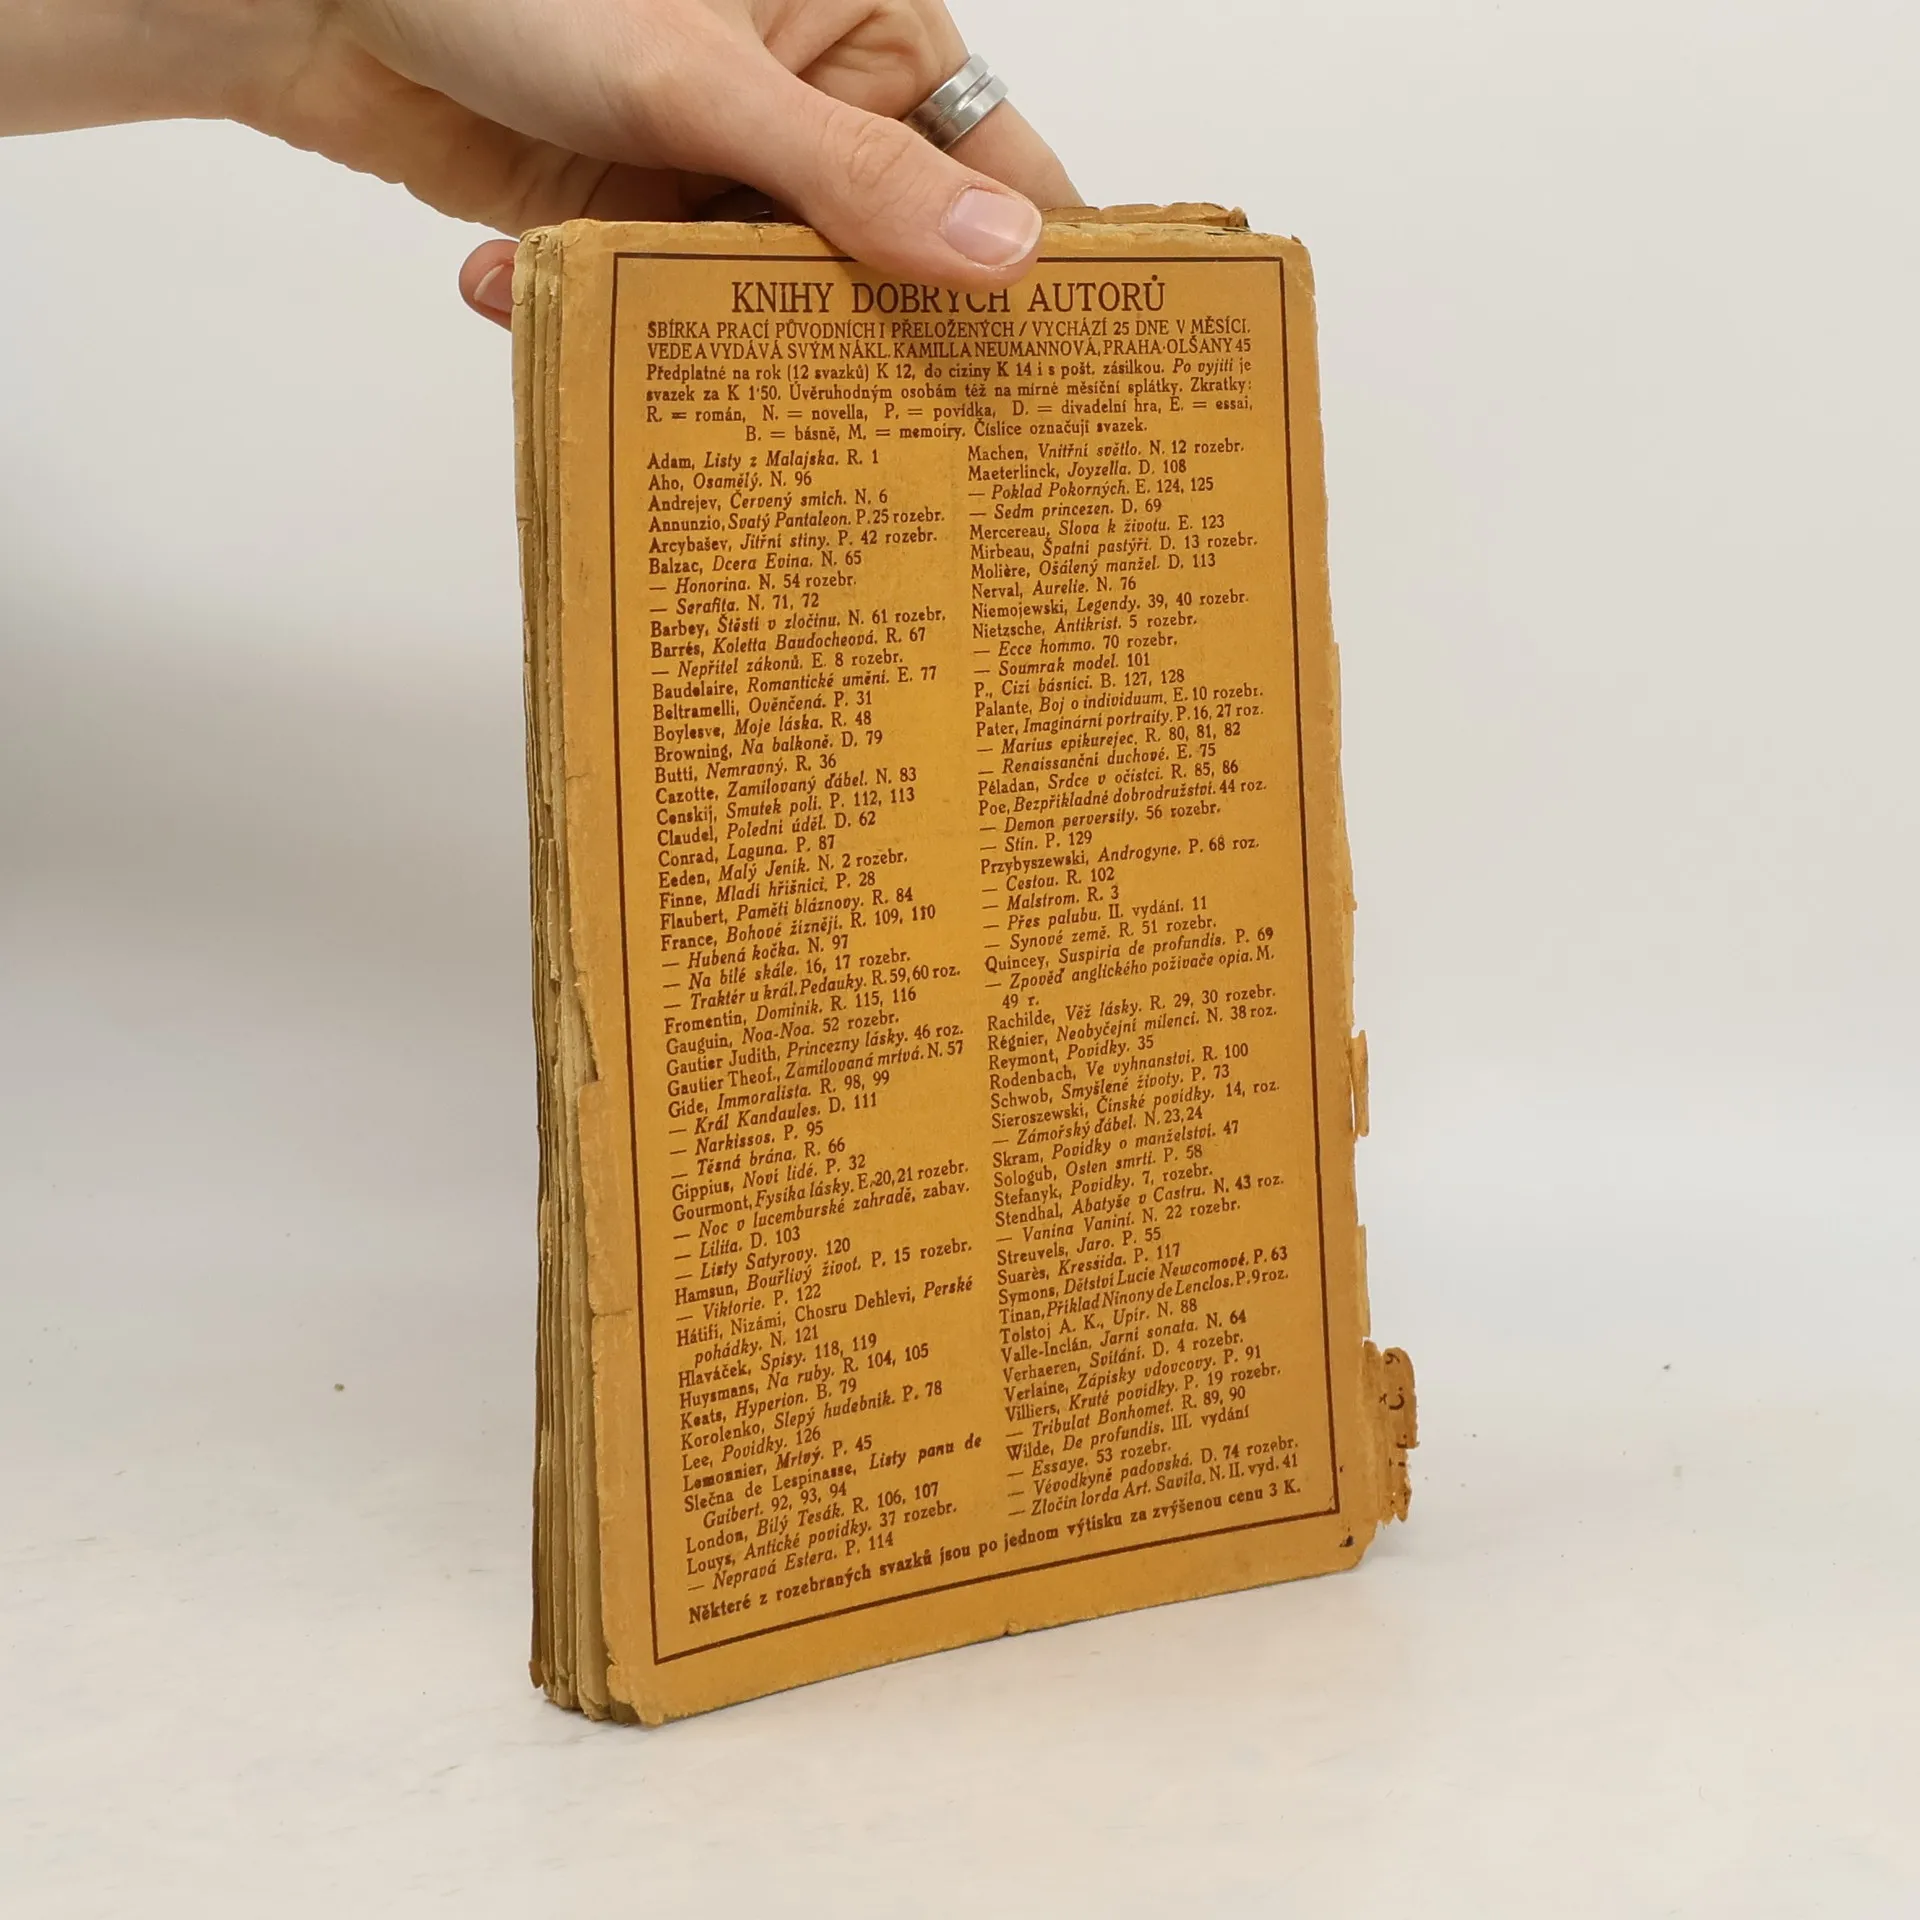 KNIHY DOBRÝCH AUTORŮ
SBÍRKA PRACÍ PŮVODNÍCH I PŘELOŽENÝCH / VYCHÁZÍ 25 DNE V MĚSÍCI.
VEDE A VYDÁVÁ SVÝM NÁKL. KAMILLA NEUMANNOVÁ, PRAHA-OLŠANY 45
Předplatné na rok (12 svazků) K 12, do ciziny K 14 i s pošt. zásilkou. Po vyjití je
svazek za K 1·50. Úvěruhodným osobám též na mírné měsíční splátky. Zkratky:
R. = román, N. = novella, P. = povídka, D. = divadelní hra, E. = essai,
B. = básně, M. = memoiry. Číslice označují svazek.
Adam, Listy z Malajska. R. 1
Aho, Osamělý. N. 96
Andrejev, Červený smích. N. 6
Annunzio, Svatý Pantaleon. P. 25 rozebr.
Arcybašev, Jitřní stíny. P. 42 rozebr.
Balzac, Dcera Evina. N. 65
— Honorina. N. 54 rozebr.
— Serafita. N. 71, 72
Barbey, Štěstí v zločinu. N. 61 rozebr.
Barrés, Koletta Baudocheová. R. 67
— Nepřítel zákonů. E. 8 rozebr.
Baudelaire, Romantické umění. E. 77
Beltramelli, Ověnčená. P. 31
Boylesve, Moje láska. R. 48
Browning, Na balkoně. D. 79
Butti, Nemravný. R. 36
Cazotte, Zamilovaný ďábel. N. 83
Censkij, Smutek polí. P. 112, 113
Claudel, Polední úděl. D. 62
Conrad, Laguna. P. 87
Eeden, Malý Jeník. N. 2 rozebr.
Finne, Mladí hříšníci. P. 28
Flaubert, Paměti bláznovy. R. 84
France, Bohové žíznějí. R. 109, 110
— Hubená kočka. N. 97
— Na bílé skále. 16, 17 rozebr.
— Traktér u král. Pedauky. R. 59, 60 roz.
Fromentin, Dominik. R. 115, 116
Gauguin, Noa-Noa. 52 rozebr.
Gautier Judith, Princezny lásky. 46 roz.
Gautier Theof., Zamilovaná mrtvá. N. 57
Gide, Immoralista. R. 98, 99
— Král Kandaules. D. 111
— Narkissos. P. 95
— Těsná brána. R. 66
Gippius, Noví lidé. P. 32
Gourmont, Fysika lásky. E. 20, 21 rozebr.
— Noc v lucemburské zahradě, zabav.
— Lilita. D. 103
— Listy Satyrovy. 120
Hamsun, Bouřlivý život. P. 15 rozebr.
— Viktorie. P. 122
Hátifí, Nizámí, Chosru Dehlevi, Perské
pohádky. N. 121
Hlaváček, Spisy. 118, 119
Huysmans, Na ruby. R. 104, 105
Keats, Hyperion. B. 79
Korolenko, Slepý hudebník. P. 78
Lee, Povídky. 126
Lemonnier, Mrtvý. P. 45
Slečna de Lespinasse, Listy panu de
Guibert. 92, 93, 94
London, Bílý Tesák. R. 106, 107
Louys, Antické povídky. 37 rozebr.
— Nepravá Estera. P. 114
Machen, Vnitřní světlo. N. 12 rozebr.
Maeterlinck, Joyzella. D. 108
— Poklad Pokorných. E. 124, 125
— Sedm princezen. D. 69
Mercereau, Slova k životu. E. 123
Mirbeau, Špatní pastýři. D. 13 rozebr.
Molière, Ošálený manžel. D. 113
Nerval, Aurelie. N. 76
Niemojewski, Legendy. 39, 40 rozebr.
Nietzsche, Antikrist. 5 rozebr.
— Ecce hommo. 70 rozebr.
— Soumrak model. 101
P., Cizí básníci. B. 127, 128
Palante, Boj o individuum. E. 10 rozebr.
Pater, Imaginární portraity. P. 16, 27 roz.
— Marius epikurejec. R. 80, 81, 82
— Renaissanční duchové. E. 75
Péladan, Srdce v očistci. R. 85, 86
Poe, Bezpříkladné dobrodružství. 44 roz.
— Demon perversity. 56 rozebr.
— Stín. P. 129
Przybyszewski, Androgyne. P. 68 roz.
— Cestou. R. 102
— Malstrom. R. 3
— Přes palubu. II. vydání. 11
— Synové země. R. 51 rozebr.
Quincey, Suspiria de profundis. P. 69
— Zpověď anglického poživače opia. M.
49 r.
Rachilde, Věž lásky. R. 29, 30 rozebr.
Régnier, Neobyčejní milenci. N. 38 roz.
Reymont, Povídky. 35
Rodenbach, Ve vyhnanství. R. 100
Schwob, Smyšlené životy. P. 73
Sieroszewski, Čínské povídky. 14, roz.
— Zámořský ďábel. N. 23, 24
Skram, Povídky o manželství. 47
Sologub, Osten smrti. P. 58
Stefanyk, Povídky. 7, rozebr.
Stendhal, Abatyše v Castru. N. 43 roz.
— Vanina Vanini. N. 22 rozebr.
Streuvels, Jaro. P. 55
Suarès, Kressida. P. 117
Symons, Dětství Lucie Newcomové. P. 63
Tinan, Příklad Ninony de Lenclos. P. 9 roz.
Tolstoj A. K., Upír. N. 88
Valle-Inclán, Jarní sonata. N. 64
Verhaeren, Svítání. D. 4 rozebr.
Verlaine, Zápisky vdovcovy. P. 91
Villiers, Kruté povídky. P. 19 rozebr.
— Tribulat Bonhomet. R. 89, 90
Wilde, De profundis. III. vydání
— Essaye. 53 rozebr.
— Vévodkyně padovská. D. 74 rozebr.
— Zločin lorda Art. Savila. N. II. vyd. 41
Některé z rozebraných svazků jsou po jednom výtisku za zvýšenou cenu 3 K.